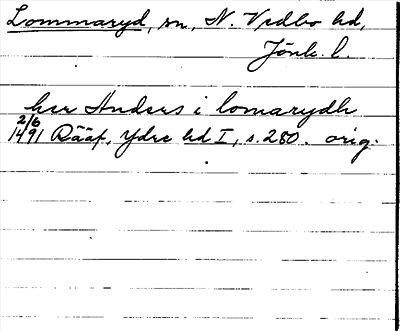 Lommaryd, sn, N. Vedbo hd,
Jönk. l.
her Anders i lomarydh
2/6
1491 Rääf, Ydre hd I, s. 280. orig.